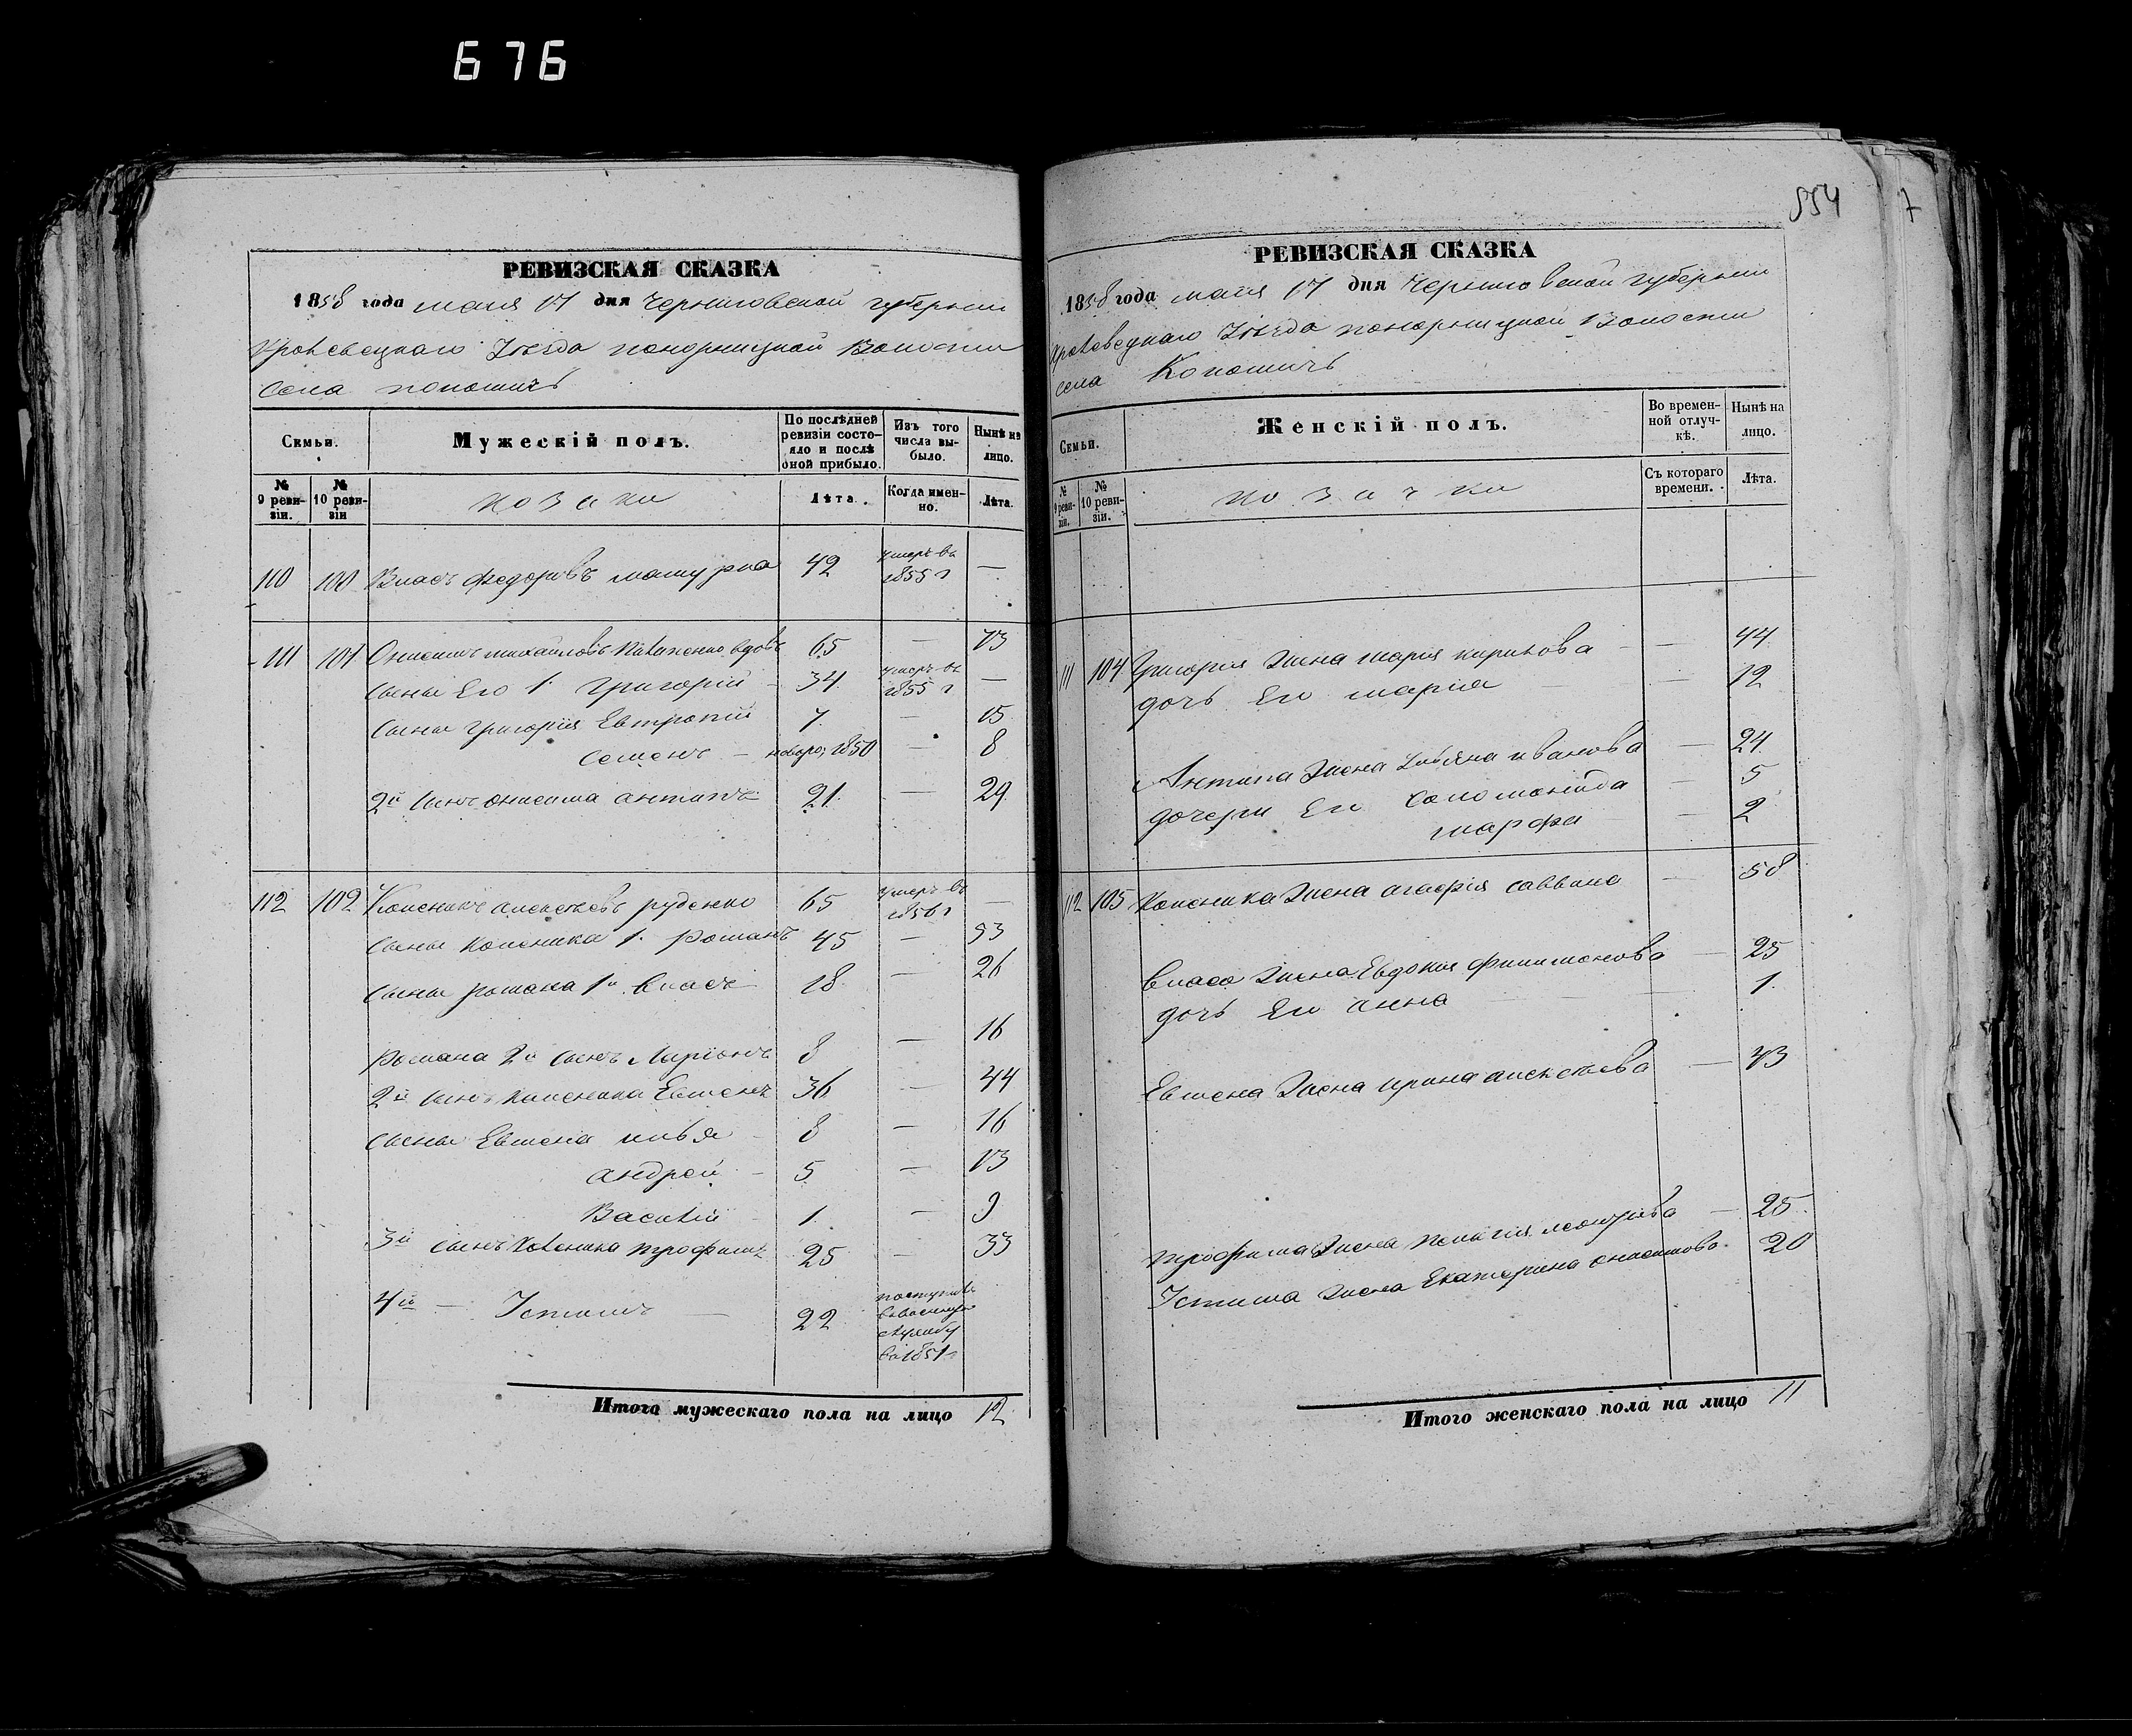 676
854
7
РЕВИЗСКАЯ СКАЗКА
1858 года мая 17 дня Черниговской губернии
Кролевецкаго Уезда понорницкой Волости
Села
Семьи.
Мужескій полъ.
По послѣдней ревизіи состояло и послѣ оной прибыло.
Изъ того числа выбыло.
Нынѣ на лицо.
№ 9 ревизіи.
№ 10 ревизіи
козаки
Лѣта.
Когда именно.
Лѣта.
110 100 Власъ Федоровъ 42 умеръ въ 1855 г —
111 101 Онисимъ михайловъ вдовъ 65 — 73
сыны Его 1. Григорій 34 умеръ въ 1855 г —
сыны григорія Евтропій 7 — 15
Семенъ — новоро; 1850 — 8
2й сынъ онисима антипъ 21 — 29
112 102 Коленикъ алексѣевъ руденко 65 умеръ въ 1856 г —
сыны Коленика 1. романъ 45 — 53
сыны романа 1й власъ 18 — 26
романа 2й сынъ Ларіонъ 8 — 16
2й сынъ Коленика Евменъ 36 — 44
сыны Евмена илья 8 — 16
андрей — 5 — 13
Василій 1 — 9
3й сынъ Коленика трофимъ 25 — 33
4й — Устимъ — 22 поступилъ въ военную службу въ 1851 г
Итого мужескаго пола на лицо 12
РЕВИЗСКАЯ СКАЗКА
1858 года мая 17 дня Черниговской губернии
Кролевецкаго Уезда понорницкой Волости
села
Семьи.
Женскій полъ.
Во временной отлучкѣ.
Нынѣ на лицо.
№ 9 ревизіи.
№ 10 ревизіи.
козачки
Съ котораго времени.
Лѣта.
111 104 Григорія жена марія кирилова — 44
дочь Его марія — 12
Антипа жена Ульяна иванова — 24
дочери Его соломонида — 5
марфа — 2
112 105 Коленика жена агафія саввина — 58
власа жена Евдокія филимонова — 25
дочь Его анна — 1
Евмена жена ирина алексѣева — 43
трофима жена пелагія — 25
Устима жена Екатерина онисимова 20
Итого женскаго пола на лицо 11